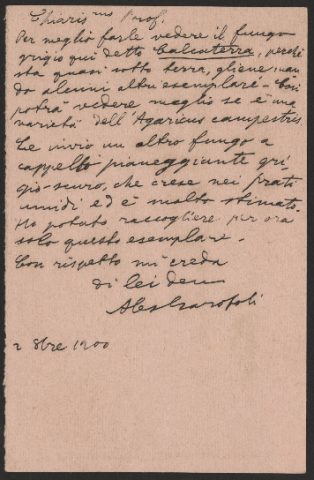 Chiaris.mo Prof.
Per meglio farle vedere il fungo
grigio qui detto Calcaterra, perchè
sta quasi sotto terra, gliene man-
do alcuni altri esemplari - Così
potrà vedere meglio se è una
varietà dell'Agaricus campestris
Le invio un altro fungo a
cappello pianeggiante gri-
gio-scuro, che cresce nei prati
umidi ed è molto stimato.
Ho potuto raccogliere per ora
solo questo esemplare -
Con rispetto mi creda
di lei dev.
Aless Garofoli
2 8bre 1900